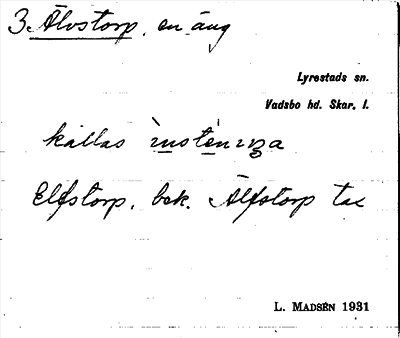 3 Älvstorp, en äng
Lyrestads sn.
Vadsbo hd. Skar. l.
kallas
Elfstorp, bek. Älfstorp tax
L. MADSÉN 1931